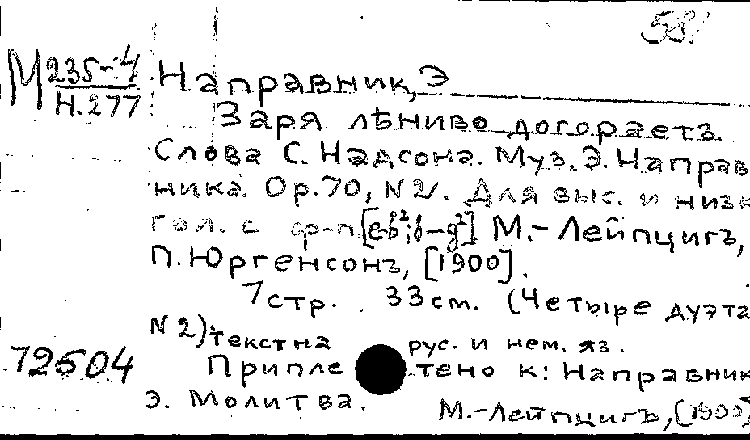 58/
М 235-4
Н.277
Направник, Э
Заря лѣниво догораетъ.
Слова С. Надсона. Муз. Э. Направ
ника. Ор. 70, N 2/. Для выс. и низк
гол. с ф-п. М.-Лейпцигъ,
П. Юргенсонъ, [1900].
7 стр. 33 см. (Четыре дуэта
N 2) Текст на рус. и нем. яз.
72504
Припле тено к: Направник
Э. Молитва. М.-Лейпцигъ, [1900]